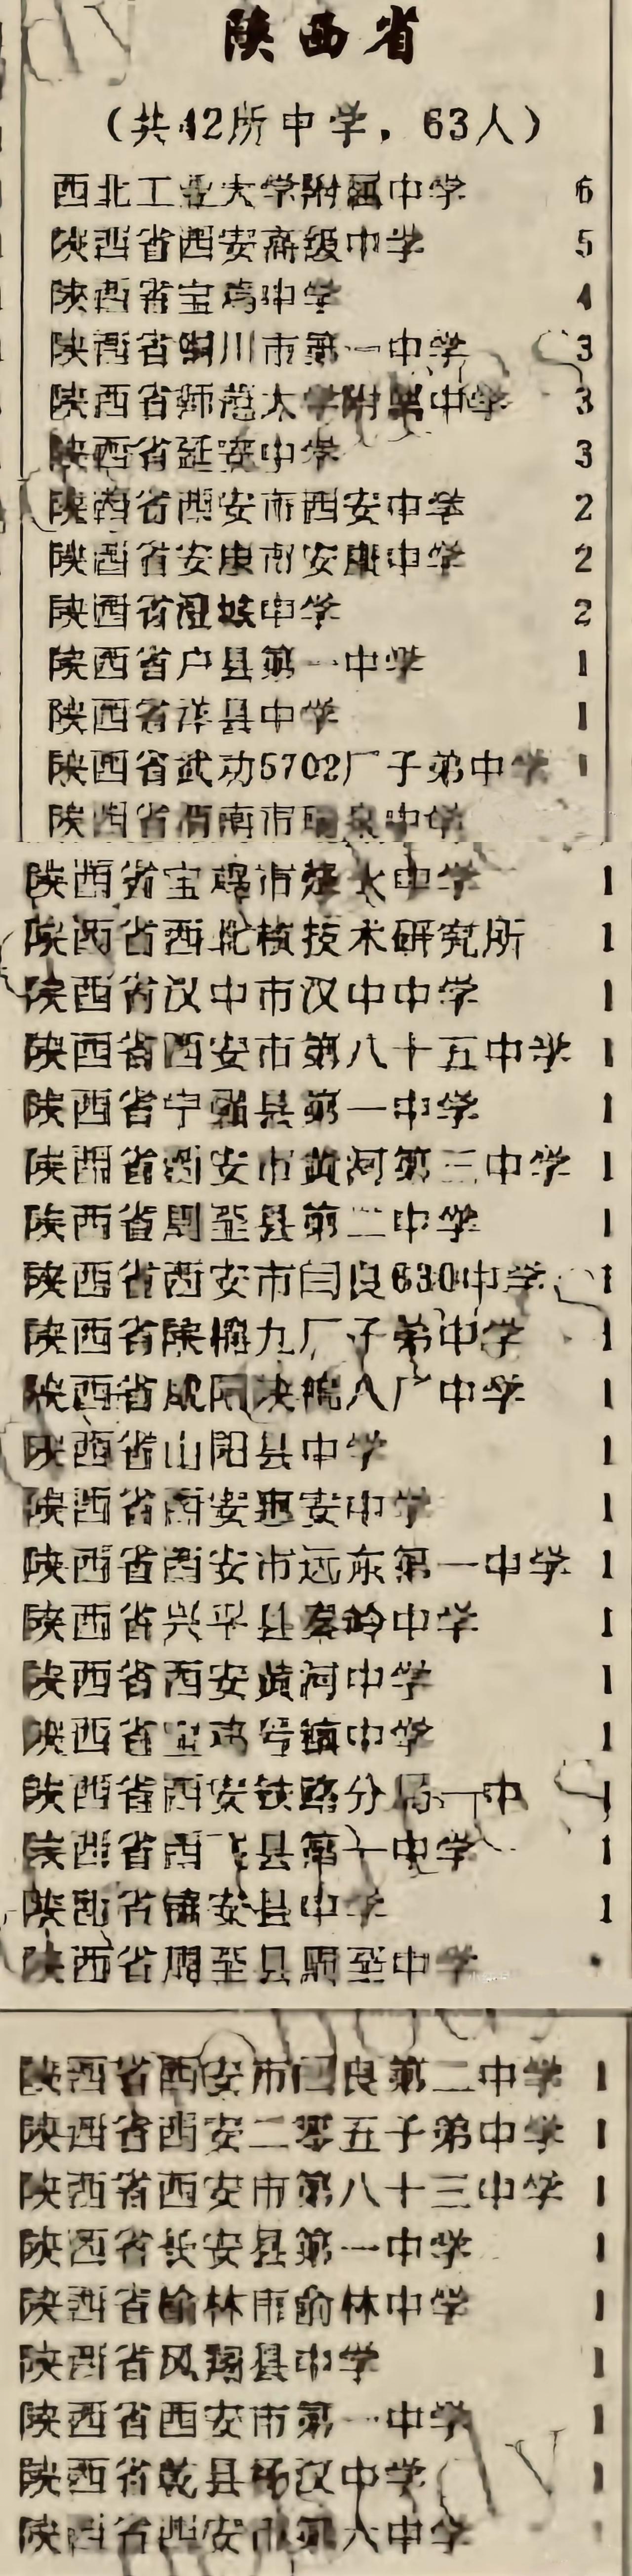 陕西省
（共42所中学，63人）
西北工业大学附属中学 6
陕西省西安高级中学 5
陕西省宝鸡中学 4
陕西省铜川市第一中学 3
陕西省师范大学附属中学 3
陕西省延安中学 3
陕西省西安市西安中学 2
陕西省安康市安康中学 2
陕西省澄城中学 2
陕西省户县第一中学 1
陕西省洋县中学 1
陕西省武功5702厂子弟中学 1
陕西省渭南市瑞泉中学
陕西省宝鸡市烽火中学 1
陕西省西北核技术研究所 1
陕西省汉中市汉中中学 1
陕西省西安市第八十五中学 1
陕西省宁强县第一中学 1
陕西省西安市黄河第三中学 1
陕西省周至县第二中学 1
陕西省西安市闫良630中学 1
陕西省陕棉九厂子弟中学 1
陕西省咸阳陕棉八厂中学 1
陕西省山阳县中学 1
陕西省西安惠安中学 1
陕西省西安市远东第一中学 1
陕西省兴平县秦岭中学 1
陕西省西安黄河中学 1
陕西省宝鸡号镇中学 1
陕西省西安铁路分局一中 1
陕西省西 县第一中学 1
陕西省镇安县中学 1
陕西省周至县周至中学
陕西省西安市闫良第二中学 1
陕西省西安二零五子弟中学 1
陕西省西安市第八十三中学 1
陕西省长安县第一中学 1
陕西省榆林市榆林中学 1
陕西省风翔县中学 1
陕西省西安市第一中学 1
陕西省乾县杨汉中学 1
陕西省西安市第六中学 1